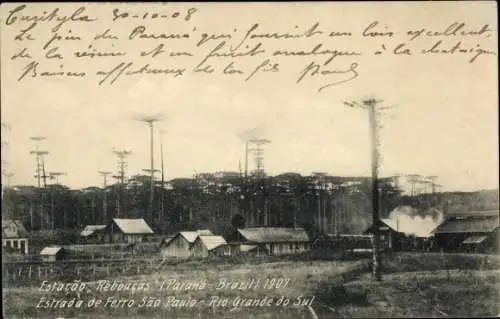 Curityba 30-10-08
Le pin du Paraná qui fournit un bois excellent,
de la résine et un fruit analogue à la chataigne
Baisers affectueux de ton fils Paul
Estação, Rebouças (Paraná - Brazil) 1907
Estrada de Ferro São Paulo - Rio Grande do Sul